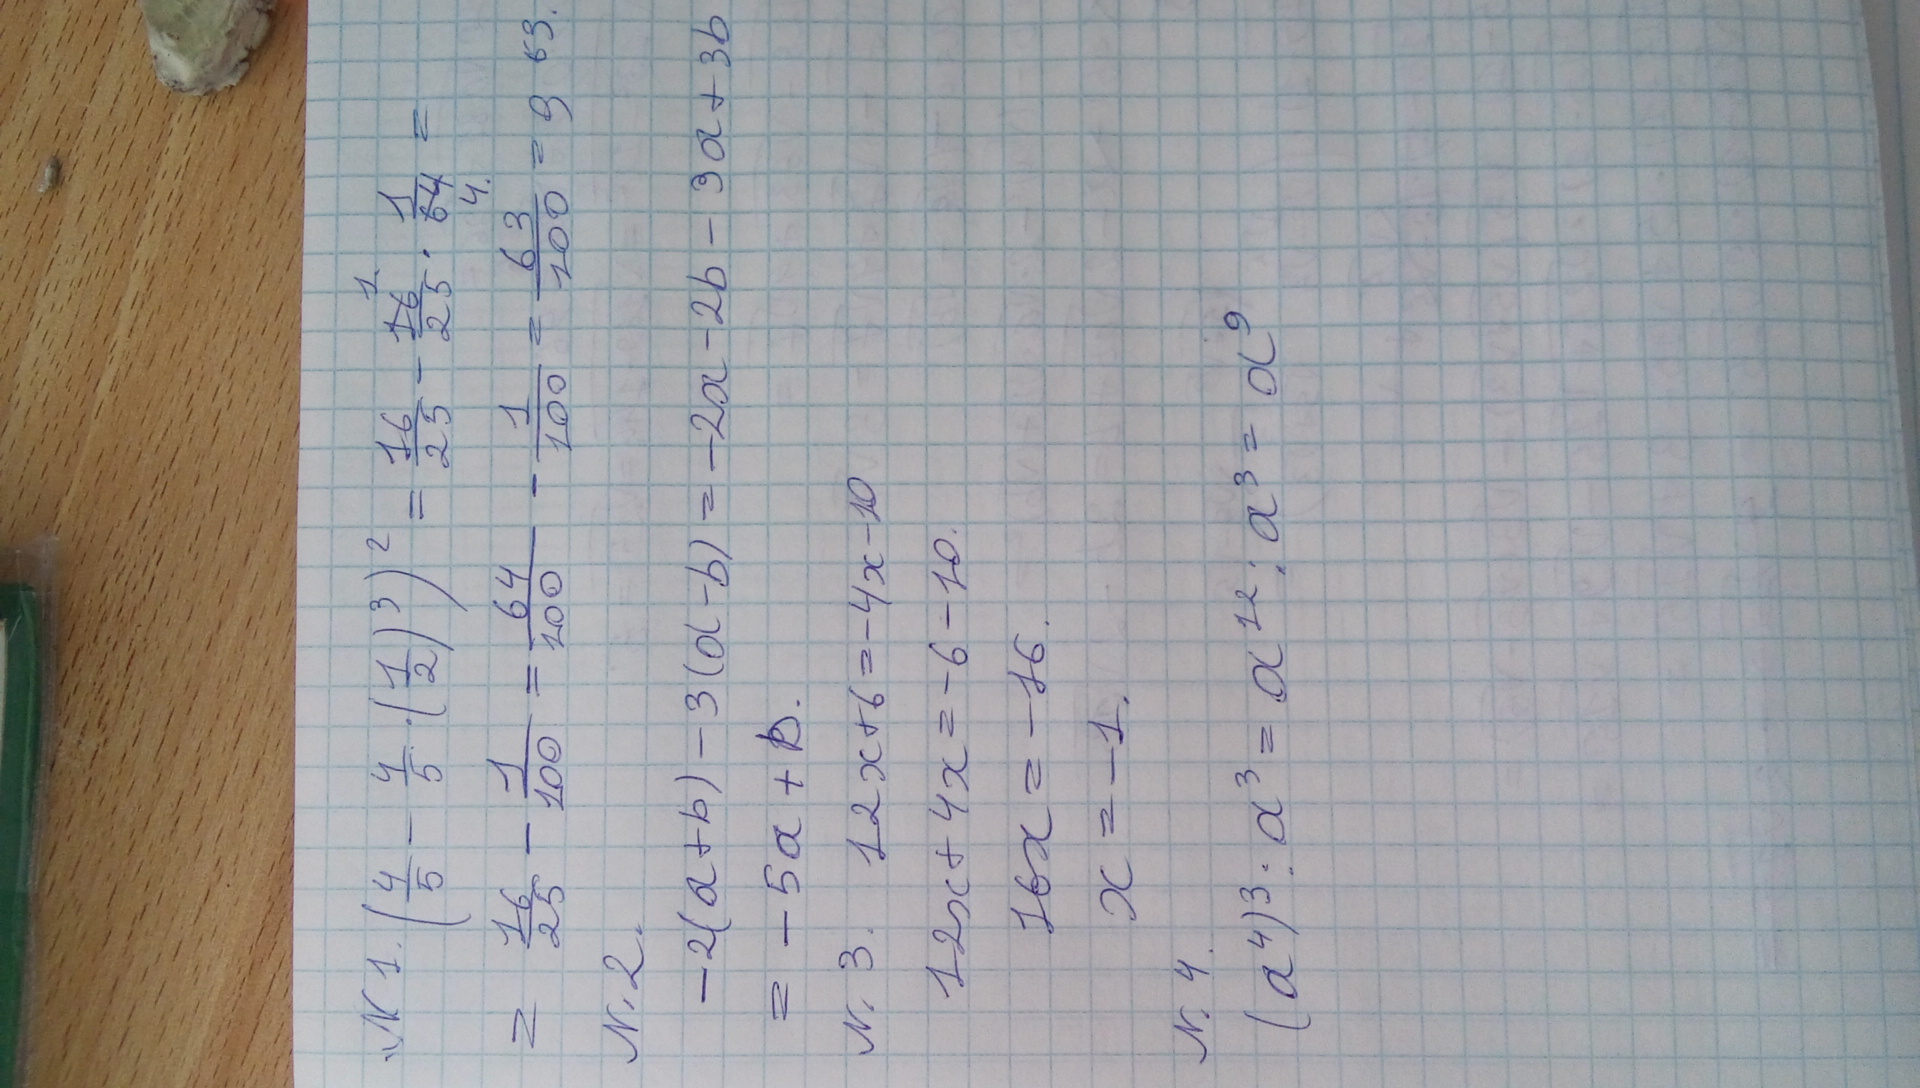 N 1. (4/5 - 4/5 · (1/2)³)² = 16/25 - 16/25 · 1/64 =
1
4.
= 16/25 - 1/100 = 64/100 - 1/100 = 63/100 = 9 63.
N. 2.
-2(a+b) - 3(a-b) = -2a - 2b - 3a + 3b
= -5a + b.
N. 3. 12x+6 = -4x-10
12x+4x = -6-10.
16x = -16.
x = -1.
N. 4.
(a⁴)³ : a³ = a¹² : a³ = a⁹